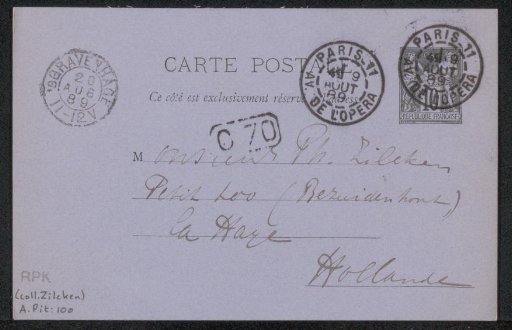 CARTE POSTALE
Ce côté est exclusivement réservé à l'adresse
PARIS. 11
9
AOUT
89
AV. DE L'OPERA
PARIS. 11
9
AOUT
89
AV. DE L'OPERA
REPUBLIQUE FRANÇAISE
'sGRAVENHAGE
20
AUG
89
11-12V
C 70
Monsieur Ph. Zilcken
Petit Loo (Bezuidenhout)
La Haye
Hollande
RPK
(coll. Zilcken)
A. Pit: 100